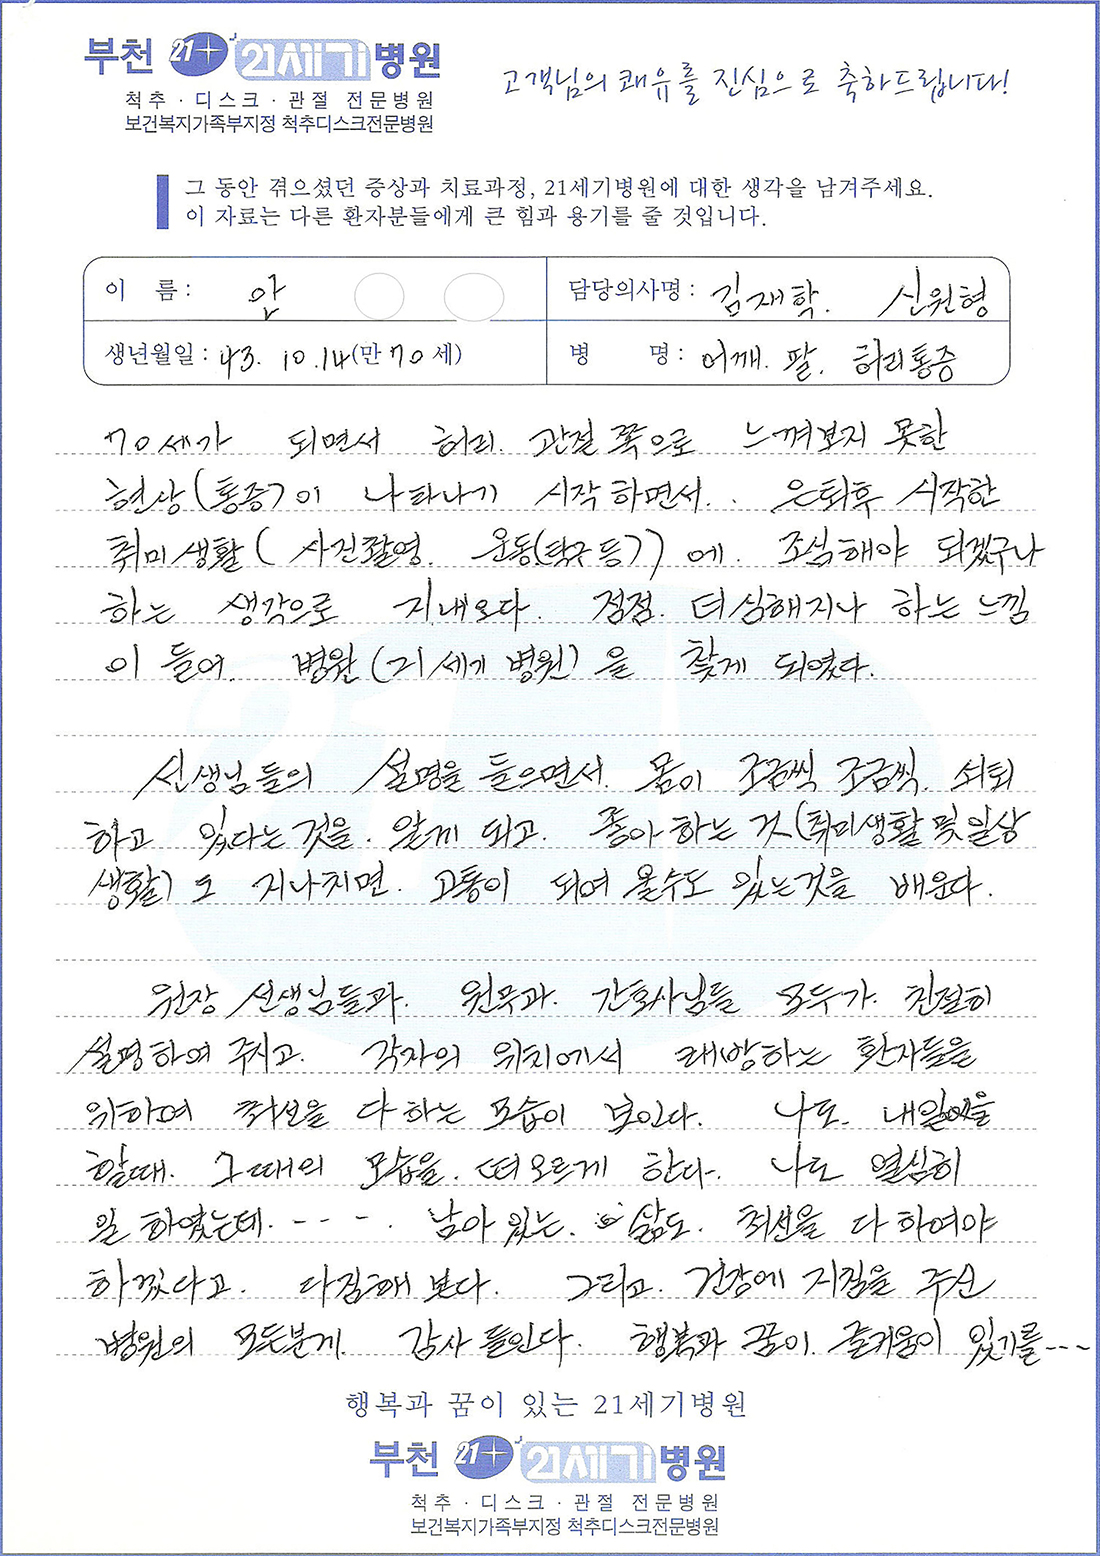 부천 21+ 21세기병원
척추 · 디스크 · 관절 전문병원
보건복지가족부지정 척추디스크전문병원
고객님의 쾌유를 진심으로 축하드립니다!
그 동안 겪으셨던 증상과 치료과정, 21세기병원에 대한 생각을 남겨주세요.
이 자료는 다른 환자분들에게 큰 힘과 용기를 줄 것입니다.
이 름 : 안 담당의사명 : 김재학. 신원형
생년월일 : 43. 10. 14 (만 70 세) 병 명 : 어깨. 팔. 허리통증
70세가 되면서 허리. 관절 쪽으로 느껴보지 못한
현상(통증)이 나타나기 시작하면서.. 은퇴후 시작한
취미생활( 사진촬영. 운동(탁구등)) 에. 조심해야 되겠구나
하는 생각으로 지내오다. 점점. 더심해지나 하는 느낌
이 들어. 병원(21세기 병원)을 찾게 되였다.
선생님들의 설명을 들으면서. 몸이 조금씩 조금씩. 쇠퇴
하고 있다는것을. 알게 되고. 좋아하는 것(취미생활 및 일상
생활)도 지나치면. 고통이 되여 올수도 있는것을 배운다.
원장 선생님들과. 원무과. 간호사님들 모두가. 친절히
설명하여 주시고. 각자의 위치에서 래방하는 환자들을
위하여 최선을 다하는 모습이 보인다. 나도. 내일을
할때. 그때의 모습을. 떠오르게 한다. 나도 열심히
일 하였는데. - - - . 남아있는. 삶도. 최선을 다하여야
하겠다고. 다짐해 본다. 그리고. 건강에 지침을 주신
병원의 모든분께. 감사 들인다. 행복과 꿈이. 즐거움이 있기를---
행복과 꿈이 있는 21세기병원
부천 21+ 21세기병원
척추 · 디스크 · 관절 전문병원
보건복지가족부지정 척추디스크전문병원